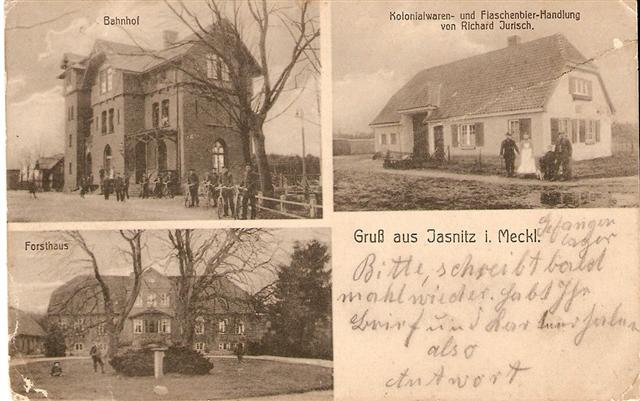 Bahnhof
Kolonialwaren- und Flaschenbier-Handlung
von Richard Jurisch.
Forsthaus
Gruß aus Jasnitz i. Meckl.
Gefangen
lager
Bitte, schreibt bald
mahl wieder. habt Ihr
und
also
Antwort